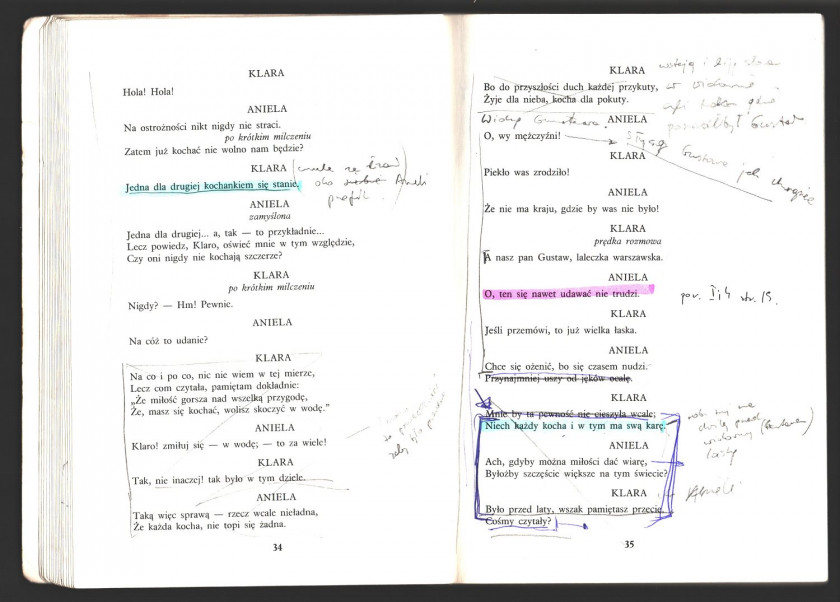 KLARA
Hola! Hola!
ANIELA
Na ostrożności nikt nigdy nie straci.
po krótkim milczeniu
Zatem już kochać nie wolno nam będzie?
KLARA
Jedna dla drugiej kochankiem się stanie.
ANIELA
zamyślona
Jedna dla drugiej... a, tak — to przykładnie...
Lecz powiedz, Klaro, oświeć mnie w tym względzie,
Czy oni nigdy nie kochają szczerze?
KLARA
po krótkim milczeniu
Nigdy? — Hm! Pewnie.
ANIELA
Na cóż to udanie?
KLARA
Na co i po co, nic nie wiem w tej mierze,
Lecz com czytała, pamiętam dokładnie:
„Że miłość gorsza nad wszelką przygodę,
Że, masz się kochać, wolisz skoczyć w wodę."
ANIELA
Klaro! zmiłuj się — w wodę; — to za wiele!
KLARA
Tak, nie inaczej! tak było w tym dziele.
ANIELA
Taką więc sprawą — rzecz wcale nieładna,
Że każda kocha, nie topi się żadna.
34
KLARA
Bo do przyszłości duch każdej przykuty,
Żyje dla nieba, kocha dla pokuty.
ANIELA
O, wy mężczyźni!
słyszy
KLARA
Piekło was zrodziło!
ANIELA
Że nie ma kraju, gdzie by was nie było!
KLARA
prędka rozmowa
A nasz pan Gustaw, laleczka warszawska.
ANIELA
O, ten się nawet udawać nie trudzi.
por. I, 4 str. 15.
KLARA
Jeśli przemówi, to już wielka łaska.
ANIELA
Chce się ożenić, bo się czasem nudzi.
Przynajmniej uszy od jęków ocalę.
KLARA
Mnie by ta pewność nie cieszyła wcale;
Niech każdy kocha i w tym ma swą karę.
ANIELA
Ach, gdyby można miłości dać wiarę,
Byłożby szczęście większe na tym świecie?
KLARA
Było przed laty, wszak pamiętasz przecie,
Cośmy czytały?
35